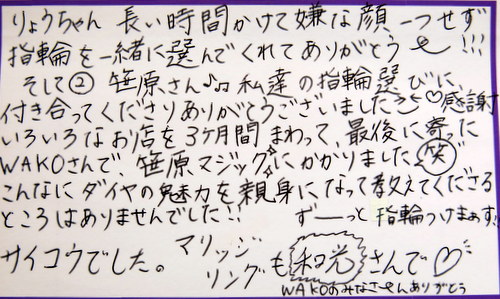 りょうちゃん 長い時間かけて嫌な顔、一つせず
指輪を一緒に選んでくれてありがとう!!!
そして② 笹原さん♪♫ 私達の指輪選びに、
付き合ってくださりありがとうございました♡感謝
いろいろなお店を3ヶ月間まわって、最後に寄った
WAKOさんで、笹原マジックにかかりました。笑
こんなにダイヤの魅力を親身になって教えてくださる
ところはありませんでした!!
ずーっと指輪つけまぁす!!
サイコウでした。マリッジリングも和光さんで♡
WAKOのみなさーんありがとう